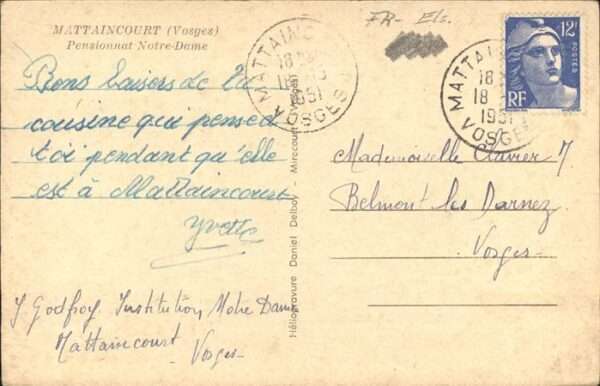 MATTAINCOURT (Vosges)
Pensionnat Notre-Dame
FR- Els.
MATTAINCOURT
18
18
1951
VOSGES
12F
POSTES
RF
MATTAIN
18
18
1951
VOSGES
Bons baisers de ta
cousine qui pense à
toi pendant qu'elle
est à Mattaincourt
Yvette
Y Godfroy. Institution Notre Dame
Mattaincourt
Vosges-
Héliogravure Daniel Delboy - Mirecourt (Vosges)
Mademoiselle Clavier J.
Belmont les Darnez
Vosges-